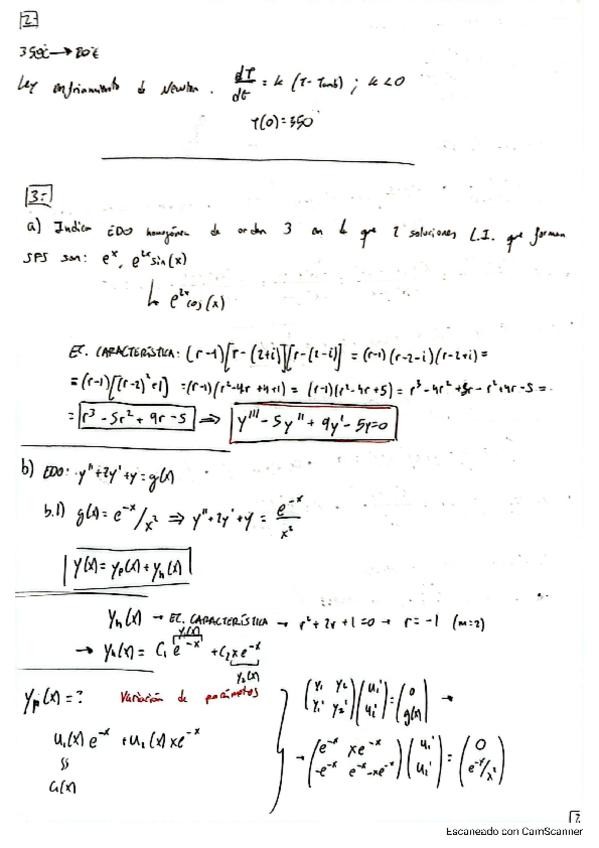 2
350℃ → 80℃
Ley enfriamiento de Newton. dT/dt = k (T - Tamb) ; k < 0
T(0) = 350
3:
a) Indica EDO homogénea de orden 3 en la que 2 soluciones L.I. que forman
SFS son: e^x, e^{2x} sin(x)
↳ e^{2x} cos(x)
EC. CARACTERÍSTICA: (r-1)[r-(2+i)][r-(2-i)] = (r-1)(r-2-i)(r-2+i) =
= (r-1)[(r-2)^2+1] = (r-1)(r^2-4r+4+1) = (r-1)(r^2-4r+5) = r^3-4r^2+5r-r^2+4r-5 =
= r^3-5r^2+9r-5 ⇒ y''' - 5y'' + 9y' - 5y = 0
b) EDO: y'' + 2y' + y = g(x)
b.1) g(x) = e^{-x}/x^2 ⇒ y'' + 2y' + y = e^{-x}/x^2
y(x) = yp(x) + yh(x)
yh(x) → EC. CARACTERÍSTICA → r^2 + 2r + 1 = 0 → r = -1 (m=2)
y1(x)
→ yh(x) = C1 e^{-x} + C2 x e^{-x}
y2(x)
yp(x) = ? Variación de parámetros
(y1 y2 / y1' y2') (u1' / u2') = (0 / g(x)) →
u1(x) e^{-x} + u2(x) x e^{-x}
→ (e^{-x} xe^{-x} / -e^{-x} e^{-x}-xe^{-x}) (u1' / u2') = (0 / e^{-x}/x^2)
C1(x)
Escaneado con CamScanner